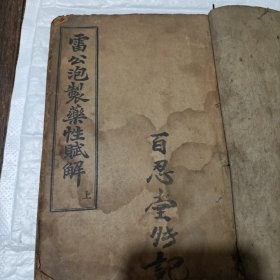 雷公泡製藥性賦解
上
百忍堂
記